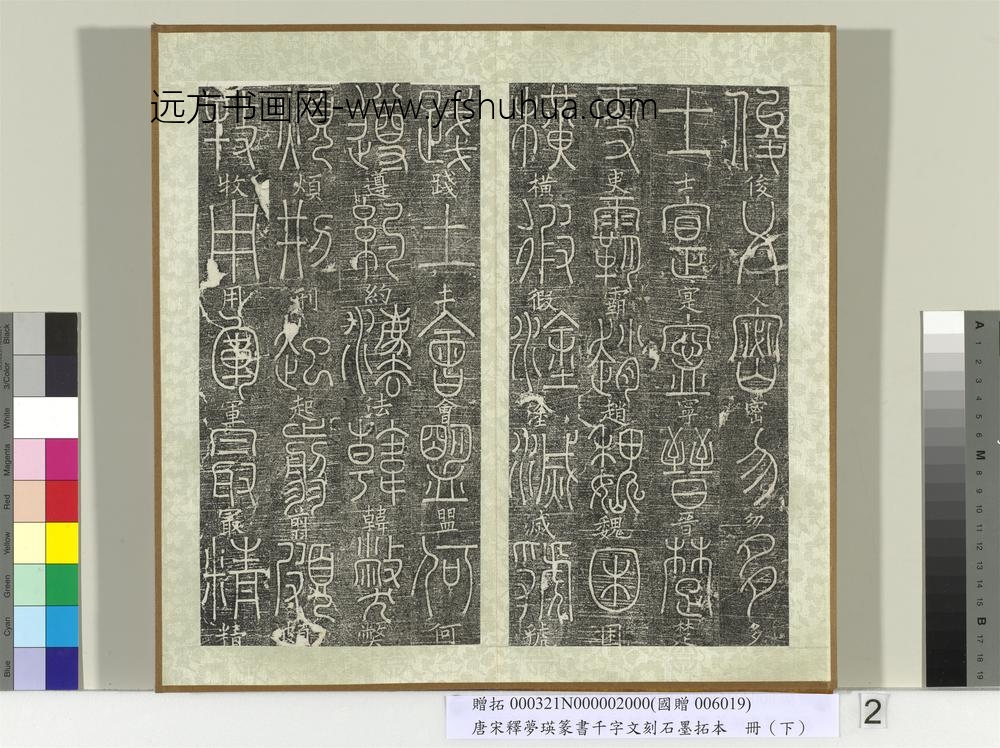 远方书画网-www.yfshuhua.com
俊乂密勿多
士寔寧晉楚
更霸趙魏困
橫假途滅虢
踐土會盟何
遵約法韓弊
煩刑起翦頗
牧用軍最精
贈拓 000321N000002000(國贈 006019)
唐宋釋夢瑛篆書千字文刻石墨拓本 冊（下）
2
Black
3/Color
White
Magenta
Red
Yellow
Green
Cyan
Blue
A 1 2 3 4 5 6 M 8 9 10 11 12 13 14 15 B 17 18 19